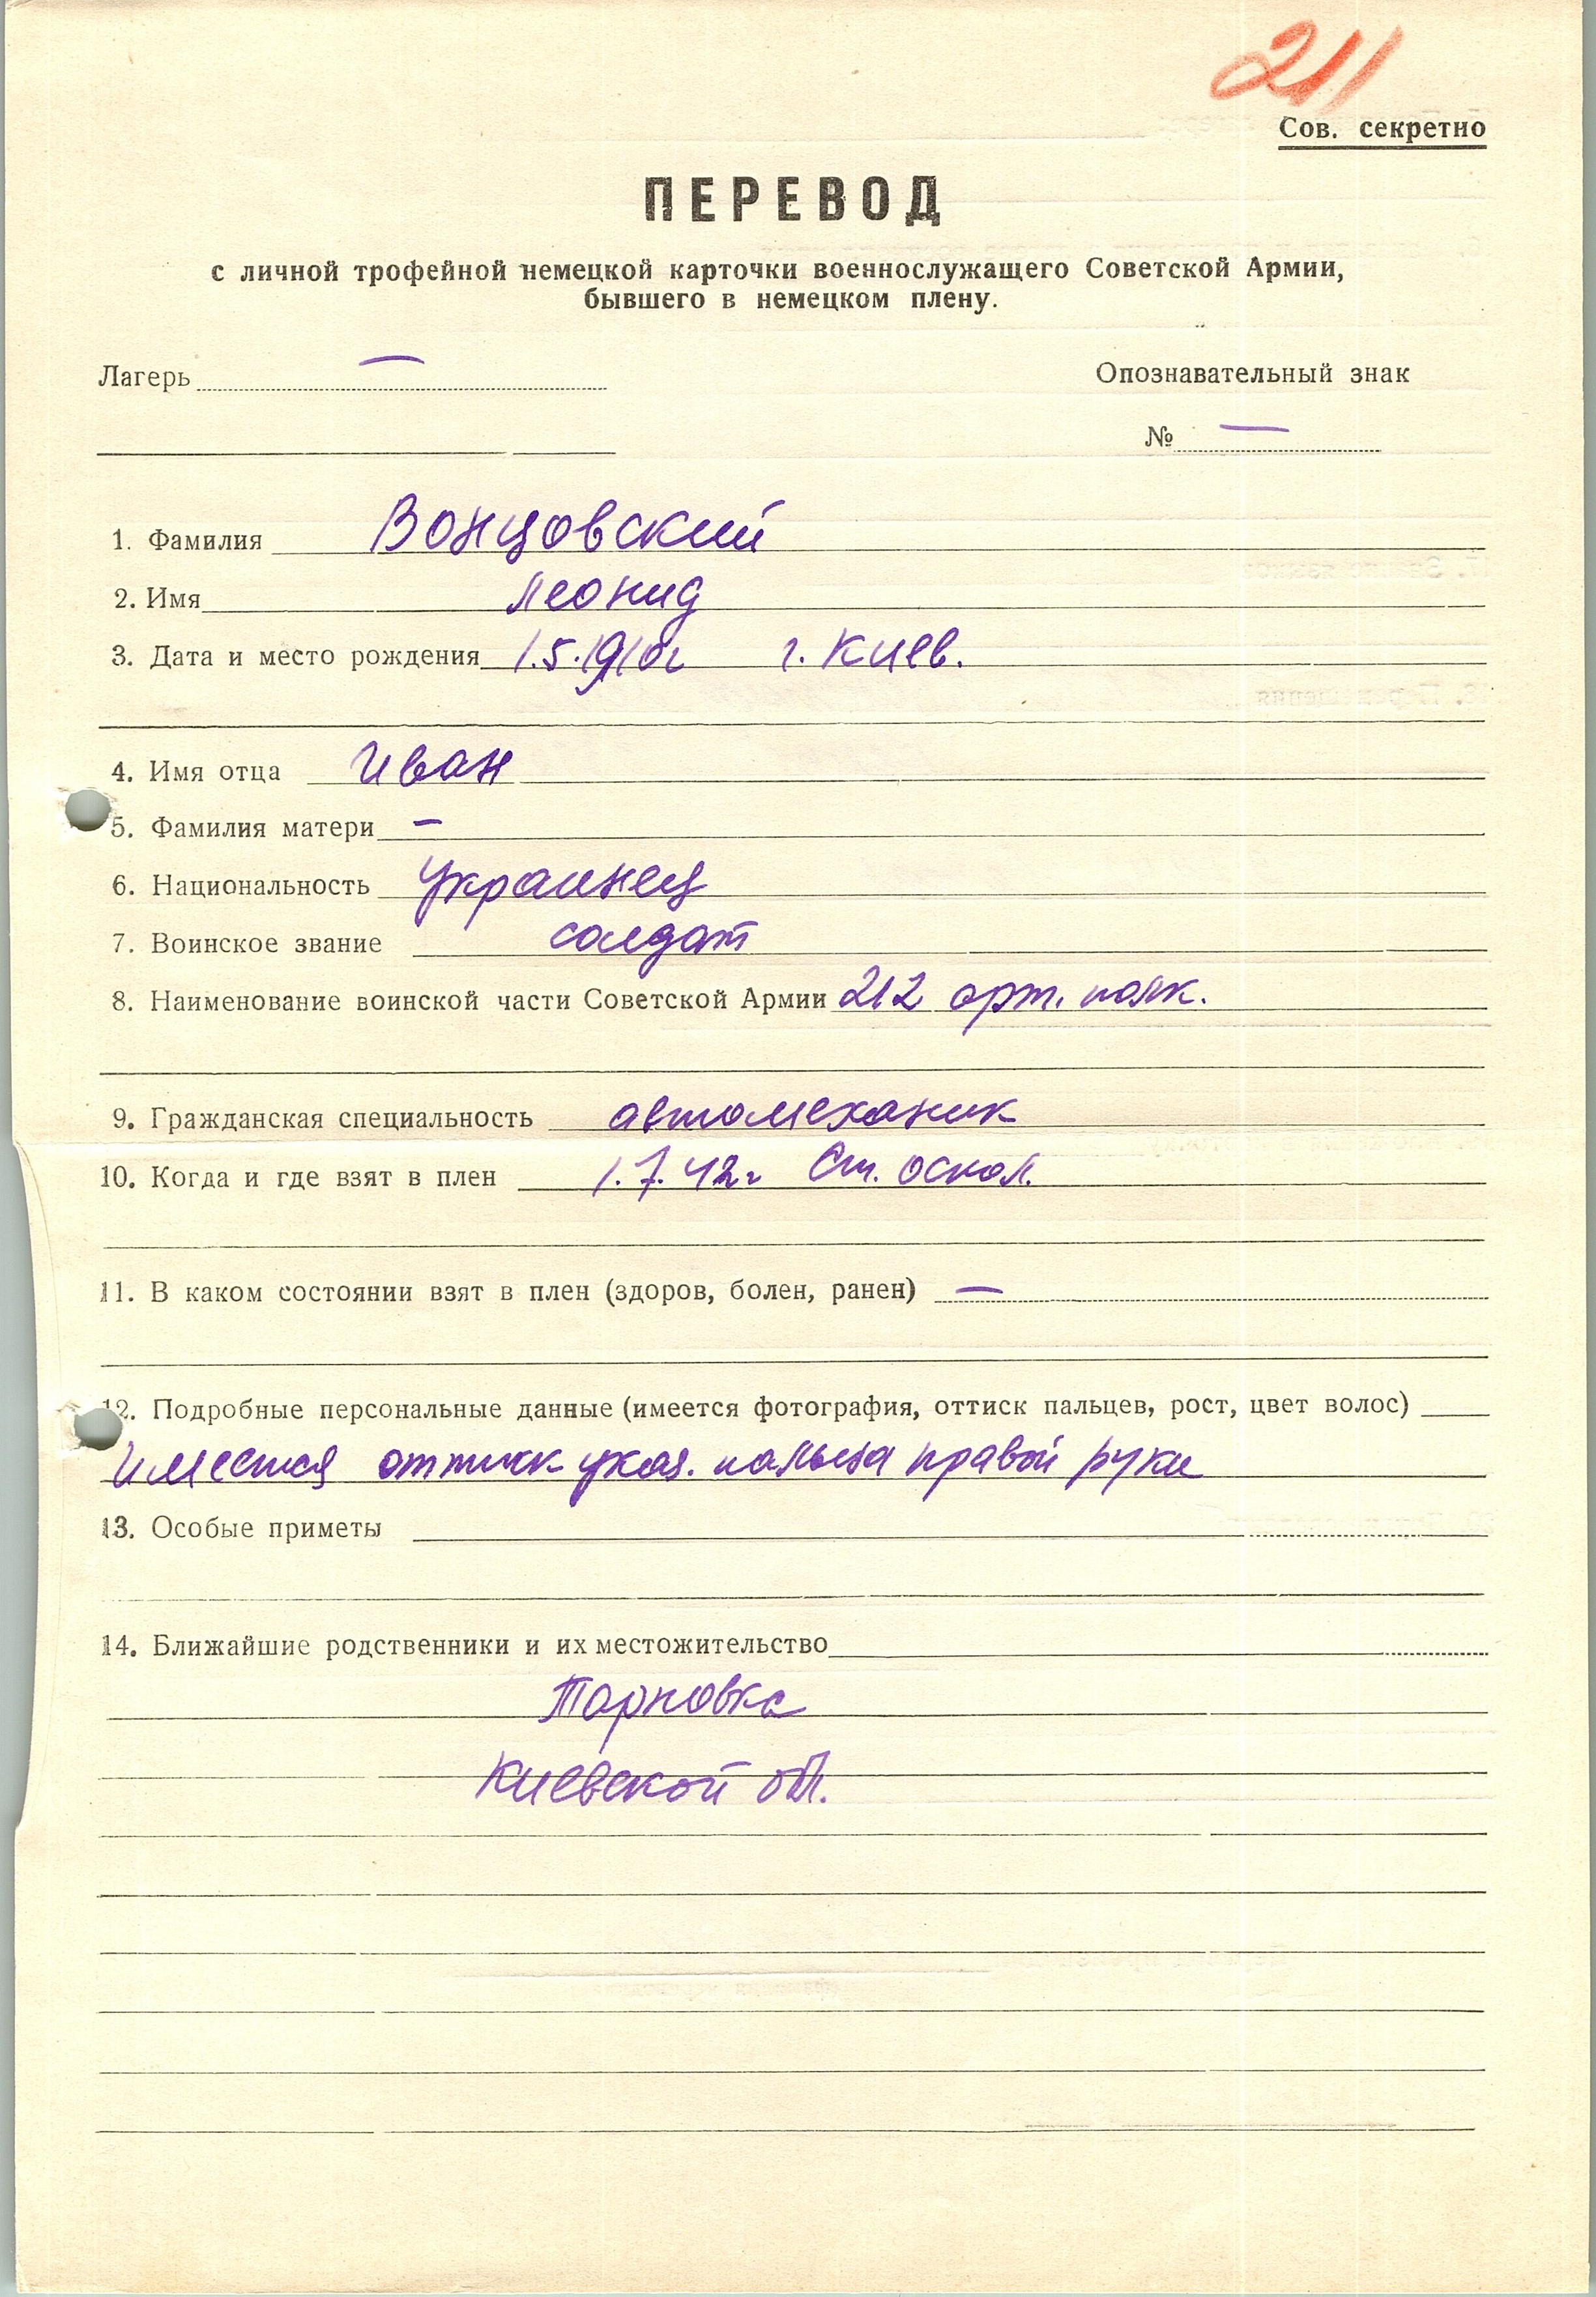 211
Сов. секретно
ПЕРЕВОД
с личной трофейной немецкой карточки военнослужащего Советской Армии,
бывшего в немецком плену.
Лагерь — Опознавательный знак
№ —
1. Фамилия Вонцовский
2. Имя Леонид
3. Дата и место рождения г. Киев.
4. Имя отца Иван
5. Фамилия матери —
6. Национальность украинец
7. Воинское звание солдат
8. Наименование воинской части Советской Армии 212 арт. полк.
9. Гражданская специальность автомеханик
10. Когда и где взят в плен 1.7.42г Ст. оскол.
11. В каком состоянии взят в плен (здоров, болен, ранен) —
12. Подробные персональные данные (имеется фотография, оттиск пальцев, рост, цвет волос)
Имеется оттиск указ. пальца правой руки
13. Особые приметы
14. Ближайшие родственники и их местожительство
Киевской обл.